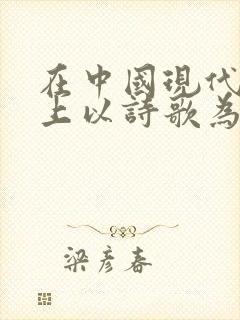 在中國現代
上以詩歌為
梁彥春